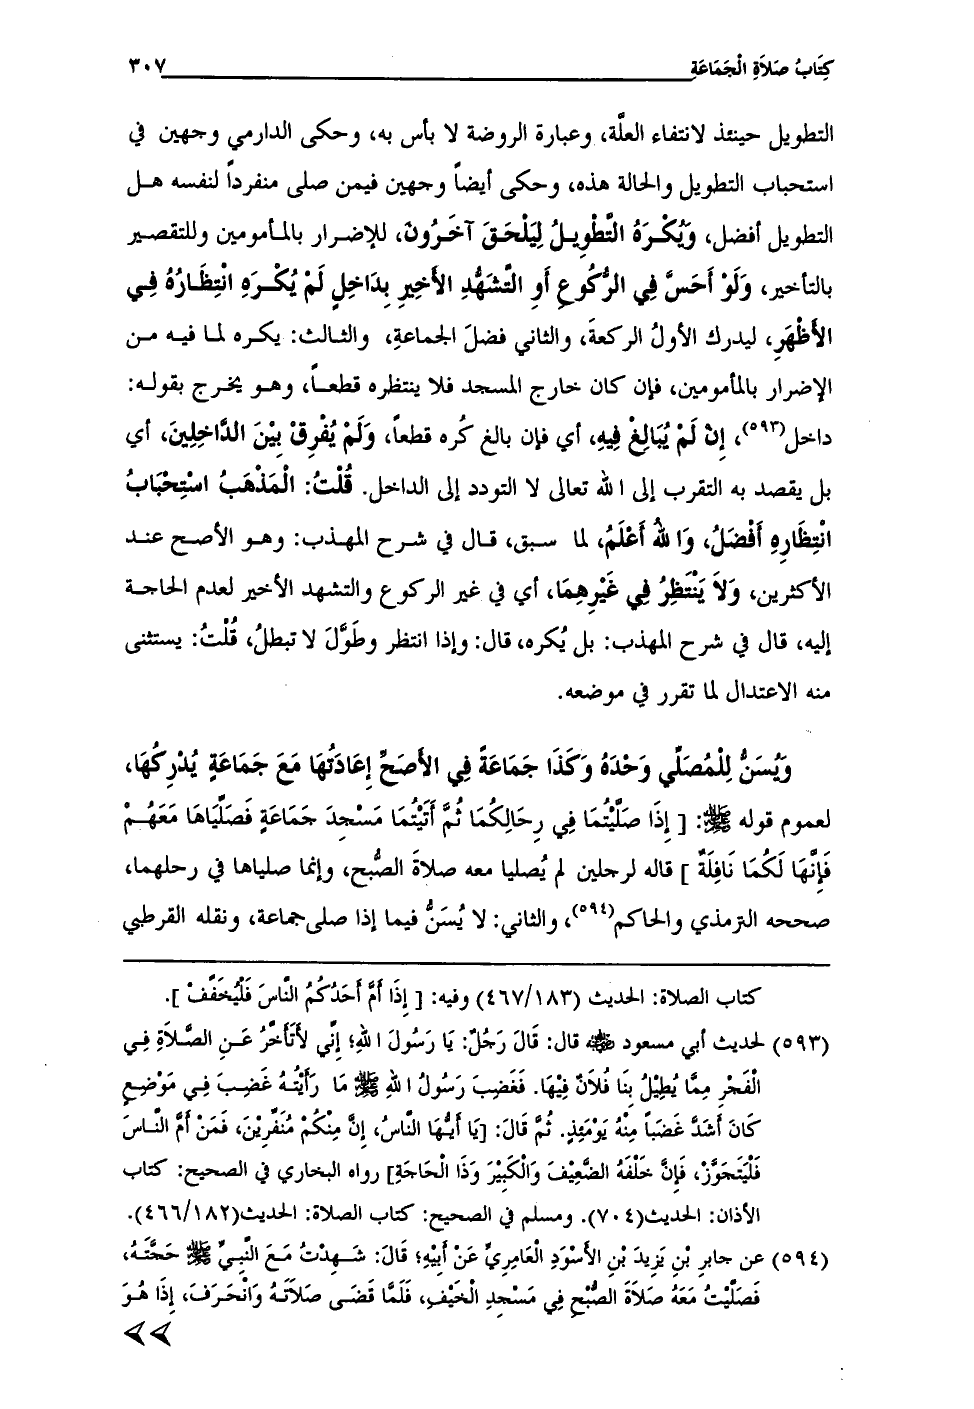 كِتَابُ صَلاَةِ الْجَمَاعَةِ ٣٠٧
التطويل حينئذ لانتفاء العلّة، وعبارة الروضة لا بأس به، وحكى الدارمي وجهين في
استحباب التطويل والحالة هذه، وحكى أيضاً وجهين فيمن صلى منفرداً لنفسه هل
التطويل أفضل، وَيُكْرَهُ التَّطْوِيلُ لِيَلْحَقَ آخَرُونَ، للإضرار بالمأمومين وللتقصير
بالتأخير، وَلَوْ أَحَسَّ فِي الرُّكُوعِ أَوِ التَّشَهُّدِ الأَخِيرِ بِدَاخِلٍ لَمْ يُكْرَهِ انْتِظَارُهُ فِي
الأَظْهَرِ، ليدرك الأولُ الركعةَ، والثاني فضلَ الجماعةِ، والثالث: يكره لما فيه من
الإضرار بالمأمومين، فإن كان خارج المسجد فلا ينتظره قطعاً، وهو يخرج بقوله:
داخل(٥٩٣)، إِنْ لَمْ يُبَالِغْ فِيهِ، أي فإن بالغ كُره قطعاً، وَلَمْ يُفْرِقْ بَيْنَ الدَّاخِلِينَ، أي
بل يقصد به التقرب إلى الله تعالى لا التودد إلى الداخل. قُلْتُ: الْمَذْهَبُ اسْتِحْبَابُ
انْتِظَارِهِ أَفْضَلُ، وَاللهُ أَعْلَمُ، لما سبق، قال في شرح المهذب: وهو الأصح عند
الأكثرين، وَلاَ يَنْتَظِرُ فِي غَيْرِهِمَا، أي في غير الركوع والتشهد الأخير لعدم الحاجة
إليه، قال في شرح المهذب: بل يُكره، قال: وإذا انتظر وطَوَّلَ لا تبطلُ، قُلْتُ: يستثنى
منه الاعتدال لما تقرر في موضعه.
وَيُسَنُّ لِلْمُصَلِّي وَحْدَهُ وَكَذَا جَمَاعَةً فِي الأَصَحِّ إِعَادَتُهَا مَعَ جَمَاعَةٍ يُدْرِكُهَا،
لعموم قوله ﷺ: [ إِذَا صَلَّيْتُمَا فِي رِحَالِكُمَا ثُمَّ أَتَيْتُمَا مَسْجِدَ جَمَاعَةٍ فَصَلِّيَاهَا مَعَهُمْ
فَإِنَّهَا لَكُمَا نَافِلَةٌ ] قاله لرجلين لم يُصليا معه صلاةَ الصُّبح، وإنما صلياها في رحلهما،
صححه الترمذي والحاكم(٥٩٤)، والثاني: لا يُسَنُّ فيما إذا صلى جماعة، ونقله القرطبي
كتاب الصلاة: الحديث (٤٦٧/١٨٣) وفيه: [ إِذَا أَمَّ أَحَدُكُمُ النَّاسَ فَلْيُخَفِّفْ ].
(٥٩٣) لحديث أبي مسعود ﷺ قال: قَالَ رَجُلٌ: يَا رَسُولَ اللهِ؛ إِنِّي لأَتَأَخَّرُ عَنِ الصَّلاَةِ فِي
الْفَجْرِ مِمَّا يُطِيْلُ بِنَا فُلاَنٌ فِيْهَا. فَغَضِبَ رَسُولُ اللهِ ﷺ مَا رَأَيْتُهُ غَضِبَ فِي مَوْضِعٍ
كَانَ أَشَدَّ غَضَبَاً مِنْهُ يَوْمَئِذٍ. ثُمَّ قَالَ: [يَا أَيُّهَا النَّاسُ، إِنَّ مِنْكُمْ مُنَفِّرِيْنَ، فَمَنْ أَمَّ النَّاسَ
فَلْيَتَجَوَّزْ، فَإِنَّ خَلْفَهُ الضَّعِيْفَ وَالْكَبِيْرَ وَذَا الْحَاجَةِ] رواه البخاري في الصحيح: كتاب
الأذان: الحديث(٧٠٤). ومسلم في الصحيح: كتاب الصلاة: الحديث(٤٦٦/١٨٢).
(٥٩٤) عن جابرِ بْنِ يَزِيدَ بْنِ الأَسْوَدِ الْعَامِرِيِّ عَنْ أَبِيْهِ؛ قَالَ: شَهِدْتُ مَعَ النَّبِيِّ ﷺ حَجَّتَهُ،
فَصَلَّيْتُ مَعَهُ صَلاَةَ الصُّبْحِ فِي مَسْجِدِ الْخَيْفِ، فَلَمَّا قَضَى صَلاَتَهُ وَانْحَرَفَ، إِذَا هُوَ